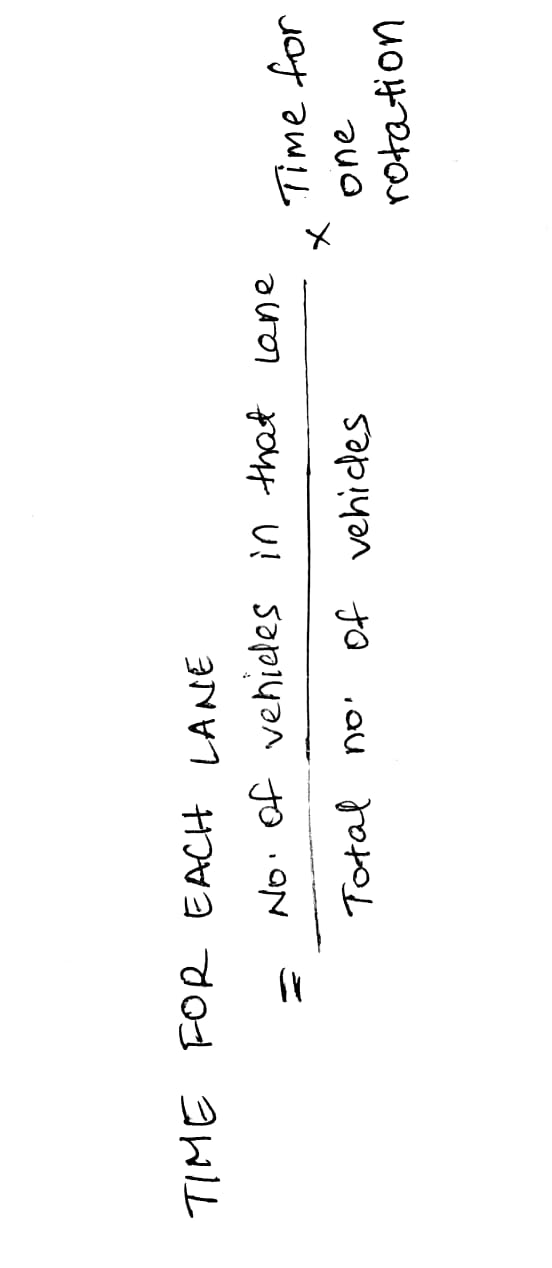 TIME FOR EACH LANE
= No. of vehicles in that Lane
Total no. of vehicles
× Time for
one
rotation